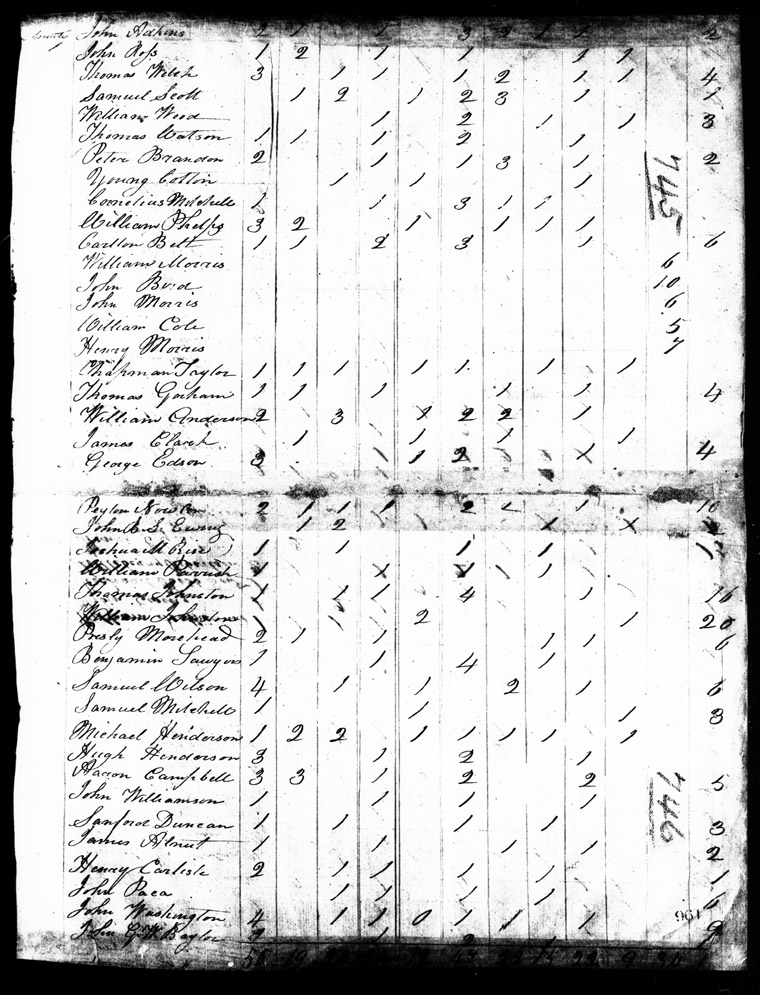 County John Adkins 2 1 1 3 2 1 1 2
John Ross 1 2 1 1 1 1
Thomas Welch 3 1 1 1 2 1 1 4
Samuel Scott 1 2 1 2 3 1 1
William Wood 1 2 1 1 3
Thomas Watson 1 1 1 2 1
Peter Brandon 2 1 1 3 1 2
Young Cotton 1 1 1
Cornelius Mitchell 1 1 3 1 1
William Phelps 3 2 1 1 1 1
Carlton Belt 1 1 2 3 1 6
745
William Morris 6
John Bird 10
John Morris 6
William Cole 5
Henry Morris 7
Chapman Taylor 1 1 1 1 1 1 1
Thomas Gorham 1 1 1 1 1 4
William Anderson 2 3 1 2 2 1
James Clark 1 1 1 1
George Edson 3 1 1 2 1 4
Peyton 2 1 1 1 2 1 10
John S. Ewing 1 2 1 1
Joshua M 1 1 1 1 1
William Parrish 1 1 1
Thomas Johnston 1 1 1 4 1 16
William Johnston 1 2 20
Presly Morehead 2 1 1 1 1 6
Benjamin Sawyers 1 1 4 1
Samuel Wilson 4 1 1 2 1 6
Samuel Mitchell 1 1 1 3
Michael Henderson 1 2 2 1 1 1 1 1
Hugh Henderson 3 1 2 1
Aaron Campbell 3 3 1 2 2 5
John Williamson 1 1 1 1
746
Sanford Duncan 1 1 1 1 3
James 1 1 1 1 1 2
Henry Carlisle 2 1 1 1 1 1
John 1 1 1 1 6
John Washington 4 1 1 0 1 1 1
961
John Baylor 1 9